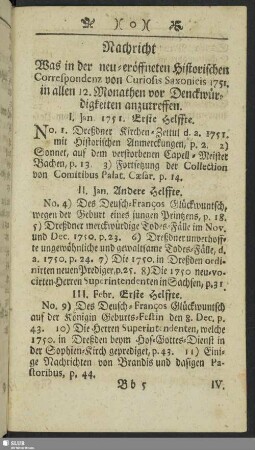 )o(
Nachricht
Was in der neu-eröffneten Historischen
Correspondenz von Curiosis Saxonicis 1751.
in allen 12. Monathen vor Denckwür-
digkeiten anzutreffen.
I. Jan. 1751. Erste Helffte.
No. 1. Dreßdner Kirchen-Zettul d. a. 1751.
mit Historischen Anmerckungen, p. 2. 2)
Sonnet, auf dem verstorbenen Capell-Meister
Bachen, p. 13. 3) Fortsetzung der Collection
von Comitibus Palat. Cæsar. p. 14.
II. Jan. Andere Helffte.
No. 4) Des Deusch-François Glückwuntsch,
wegen der Geburt eines jungen Printzens, p. 18.
5) Dreßdner merckwürdige Todes-Fälle im Nov.
und Dec. 1750. p. 23. 6) Dreßdner unverhoff-
te ungewöhnliche und gewaltsame Todes-Fälle, d.
a. 1750. p. 24. 7) Die 1750. in Dreßden ordi-
nirten neuen Prediger, p. 25. 8) Die 1750 neu-vo-
cirten Herren Superintendenten in Sachsen, p. 31.
III. Febr. Erste Helffte.
No. 9) Des Deusch-François Glückwuntsch
auf der Königin Geburts-Festin den 8. Dec. p.
43. 10) Die Herren Superintendenten, welche
1750. in Dreßden beym Hof-Gottes-Dienst in
der Sophien-Kirch geprediget, p. 43. 11) Eini-
ge Nachrichten von Brandis und dasigen Pa-
storibus, p. 44.
B b 5 IV.
SLUB